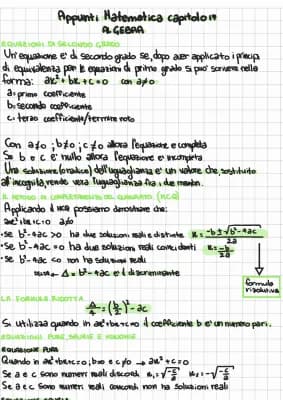 Appunti Matematica capitolo 14
ALGEBRA
EQUAZIONI DI SECONDO GRADO
Un'equazione e' di secondo grado se, dopo aver applicato i principi
di equivalenza per le equazioni di primo grado si puo' scrivere nella
forma: ax²+bx+c=0 con a≠0
a: primo coefficiente
b: secondo coefficiente
c: terzo coefficiente/termine noto
Con a≠0; b≠0; c≠0 allora l'equazione e' completa
Se b o c e' nullo allora l'equazione e' incompleta
Una soluzione (o radice) dell'uguaglianza e' un valore che, sostituito
all'incognita, rende vera l'uguaglianza fra i due membri.
IL METODO DI COMPLETAMENTO DEL QUADRATO (MCQ)
Applicando il MCQ possiamo dimostrare che:
ax²+bx+c=0 a≠0
•se b²-4ac >0 ha due soluzioni reali e distinte x = -b±√b²-4ac / 2a
•se b²-4ac =0 ha due soluzioni reali coincidenti x = -b/2a
•se b²-4ac <0 non ha soluzioni reali
Δ = b²-4ac e' il discriminante
formula
risolutiva
LA FORMULA RIDOTTA
Δ/4 = (b/2)² - ac
Si utilizza quando in ax²+bx+c=0 il coefficiente b e' un numero pari.
EQUAZIONI PURE, SPURIE E MONOMIE
EQUAZIONE PURA
Quando in ax²+bx+c=0, b=0 e c≠0 → ax²+c=0
Se a e c sono numeri reali discordi x₁=√-c/a x₂=-√-c/a
Se a e c sono numeri reali concordi non ha soluzioni reali